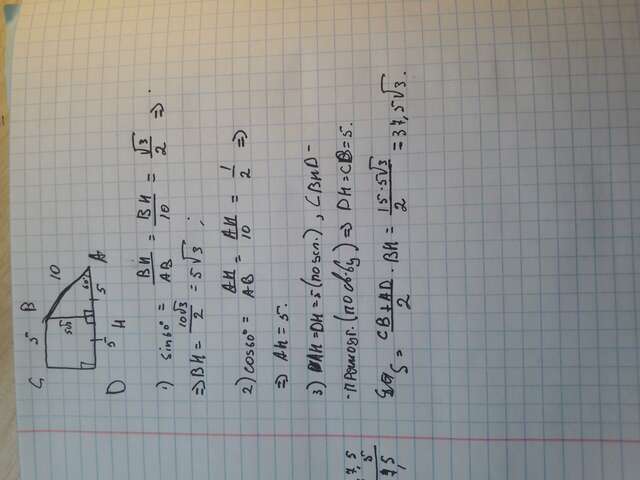 C 5 B
10
5√3
60°
A
D 5 H 5
1) sin60° = BH/AB = BH/10 = √3/2 ⇒
⇒ BH = 10√3/2 = 5√3 ;
2) cos60° = AH/AB = AH/10 = 1/2 ⇒
⇒ AH = 5.
3) AH = DH = 5 (по усл.), CBHD -
- прямоуг. (по св-ву) ⇒ DH = CB = 5.
S = (CB + AD)/2 · BH = 15·5√3/2 = 37,5√3.
7,5
5